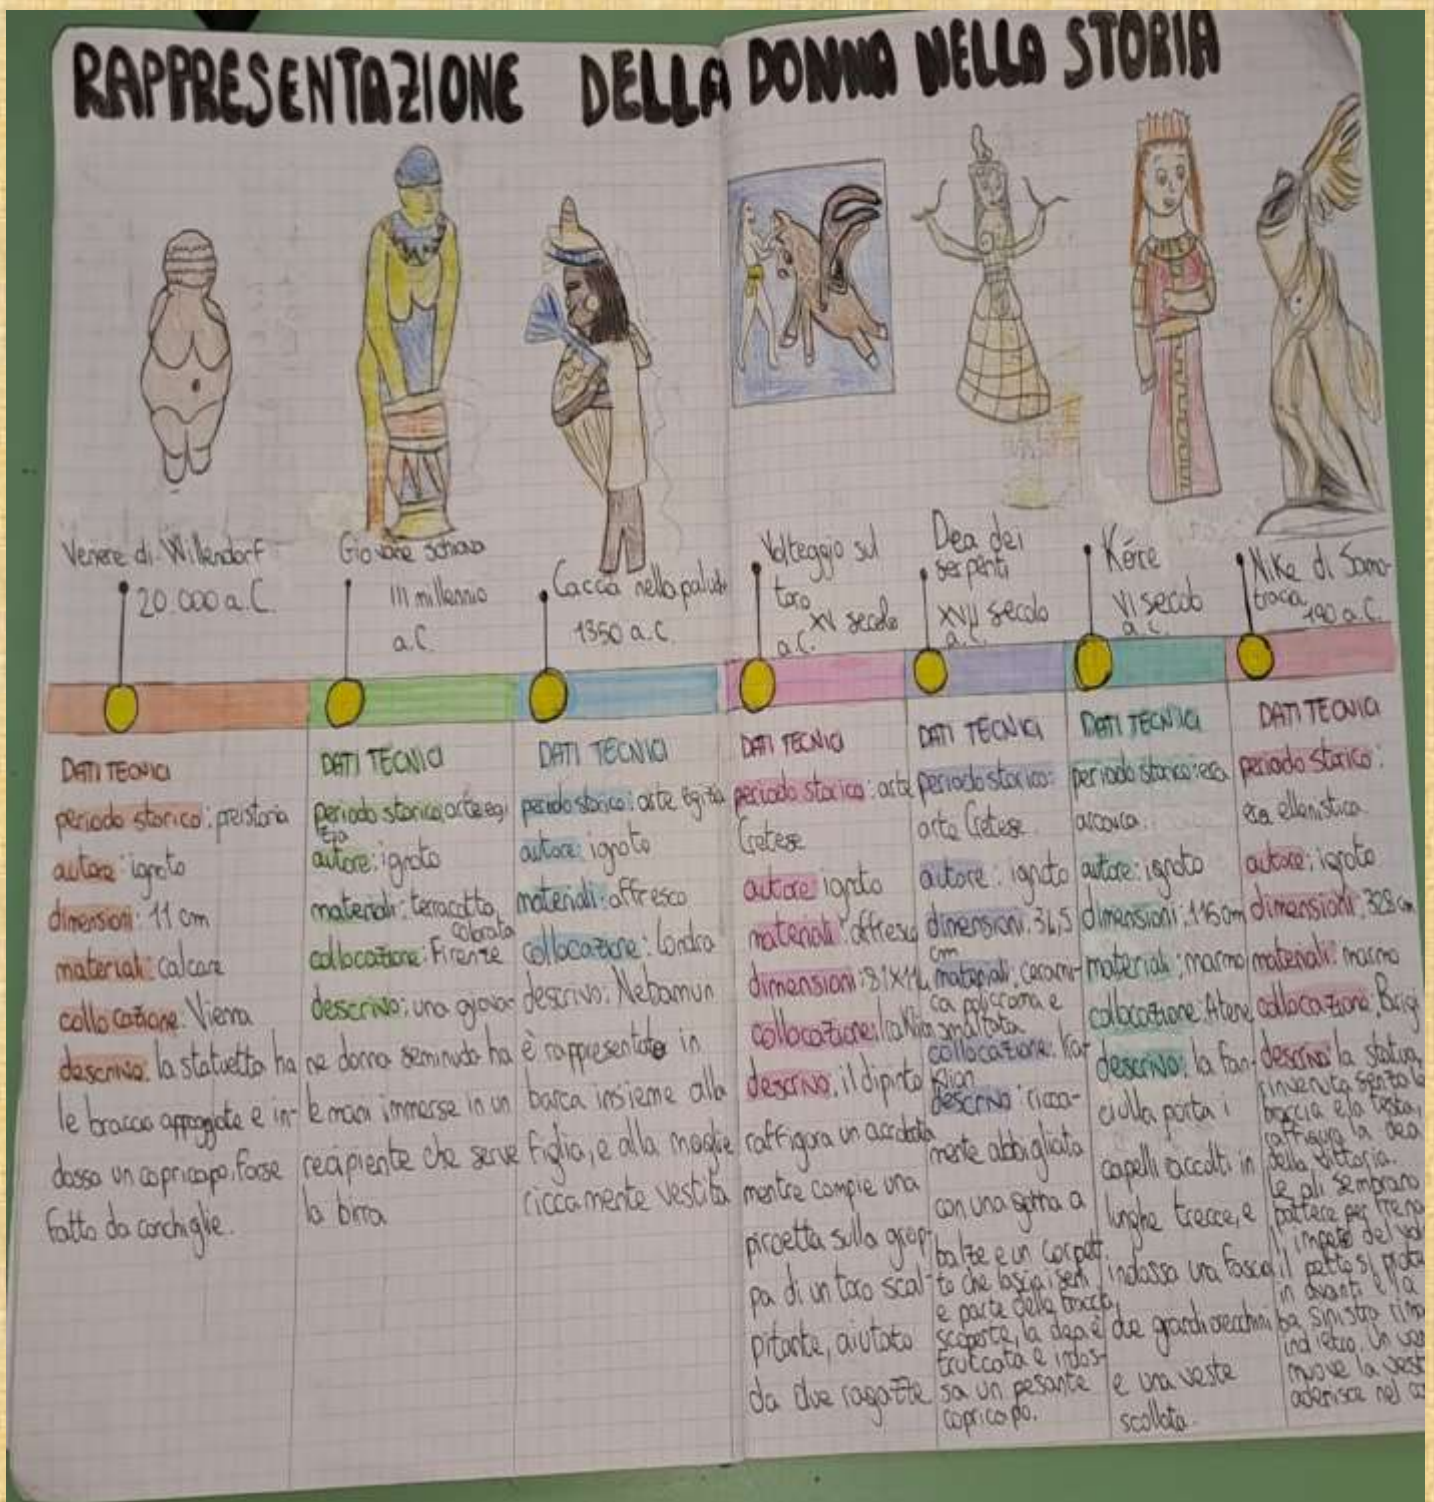 RAPPRESENTAZIONE DELLA DONNA NELLA STORIA
Venere di Willendorf
20.000 a.C.
Giovane schiava
III millennio
a.C.
Caccia nella palude
1350 a.C.
Volteggio sul
toro
XV secolo
a.C.
Dea dei
serpenti
XVII secolo
a.C.
Kóre
VI secolo
a.C.
Nike di Samo-
tracia
190 a.C.
DATI TECNICI
periodo storico: preistoria
autore: ignoto
dimensioni: 11 cm
materiali: calcare
collocazione: Vienna
descrivo: la statuetta ha
le braccia appoggiate e in-
dossa un copricapo, forse
fatto da conchiglie.
DATI TECNICI
periodo storico: arte egi
zia
autore: ignoto
materiali: terracotta
colorata
collocazione: Firenze
descrivo: una giova-
ne donna seminuda ha
le mani immerse in un
recipiente che serve
la birra
DATI TECNICI
periodo storico: arte egizia
autore: ignoto
materiali: affresco
collocazione: Londra
descrivo: Nebamun
è rappresentato in
barca insieme alla
figlia, e alla moglie
riccamente vestita
DATI TECNICI
periodo storico: arte
Cretese
autore: ignoto
materiali: affresco
dimensioni:
collocazione:
descrivo: il dipinto
raffigura un acrobata
mentre compie una
piroetta sulla grop-
pa di un toro scal-
pitante, aiutato
da due ragazze
DATI TECNICI
periodo storico:
arte Cretese
autore: ignoto
dimensioni: 34,5
cm
materiali: cerami-
ca policroma e
smaltata
collocazione:
descrivo: ricca-
mente abbigliata
con una gonna a
balze e un corpet-
to che lascia i seni
e parte delle braccia
scoperte, la dea è
truccata e indos-
sa un pesante
copricapo.
DATI TECNICI
periodo storico: era
arcaica.
autore: ignoto
dimensioni: 116 cm
materiali: marmo
collocazione: Atene
descrivo: la fan-
ciulla porta i
capelli raccolti in
lunghe trecce, e
indossa una fascia
due grandi orecchini
e una veste
scollata.
DATI TECNICI
periodo storico:
era ellenistica.
autore: ignoto
dimensioni: 328 cm
materiali: marmo
collocazione: Parigi
descrivo: la statua
rinvenuta senza le
braccia e la testa,
raffigura la dea
della vittoria.
le ali sembrano
battere per frena
l'impeto del vol
il petto si prote
in avanti e la
ba sinistra rima
indietro. Un ven
muove la vest
aderisce nel co